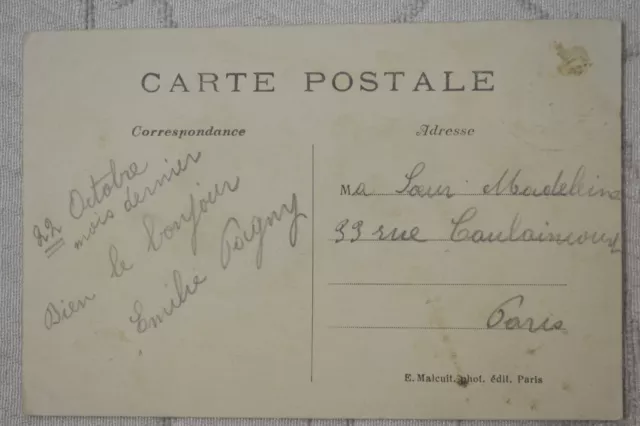 CARTE POSTALE
Correspondance
22 Octobre
mois dernier
Bien le bonjour
Emilie Pagny
Adresse
Ma Sœur Madeleine
33 rue Caulaincourt
Paris
E. Malcuit, phot. édit. Paris